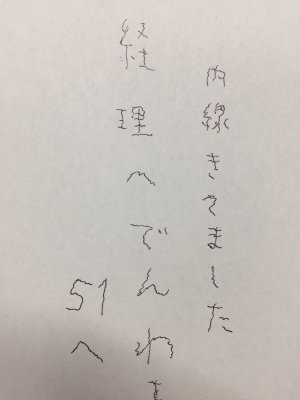 内線きてました
経理へでんわ
51へ